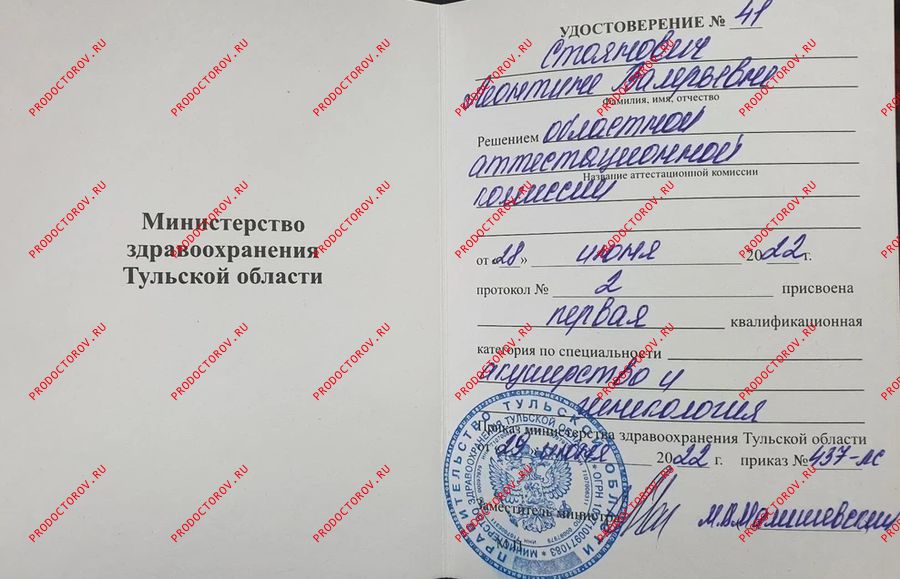 Министерство
здравоохранения
Тульской области
УДОСТОВЕРЕНИЕ № 41
Стоянович
Леонтине Валерьевне
Фамилия, имя, отчество
Решением областной
аттестационной
Название аттестационной комиссии
комиссии
от «28» июня 2022 г.
протокол № 2 присвоена
первая квалификационная
категория по специальности
акушерство и
гинекология
Приказ министерства здравоохранения Тульской области
от 29 июня 2022 г. приказ № 437-лс
Заместитель министра М.В. Малишевский
М.П.
ПРАВИТЕЛЬСТВО ТУЛЬСКОЙ ОБЛАСТИ
PRODOCTOROV.RU